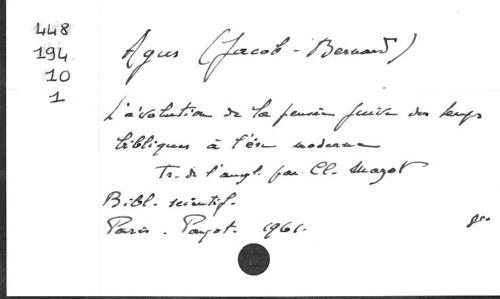 448
194
10
1
Agus (Jacob-Bernard)
L'évolution de la pensée juive des temps
bibliques à l'ère moderne
Tr. de l'angl. par Cl. Mazot
Bibl. scientif.
Paris. Payot. 1961.